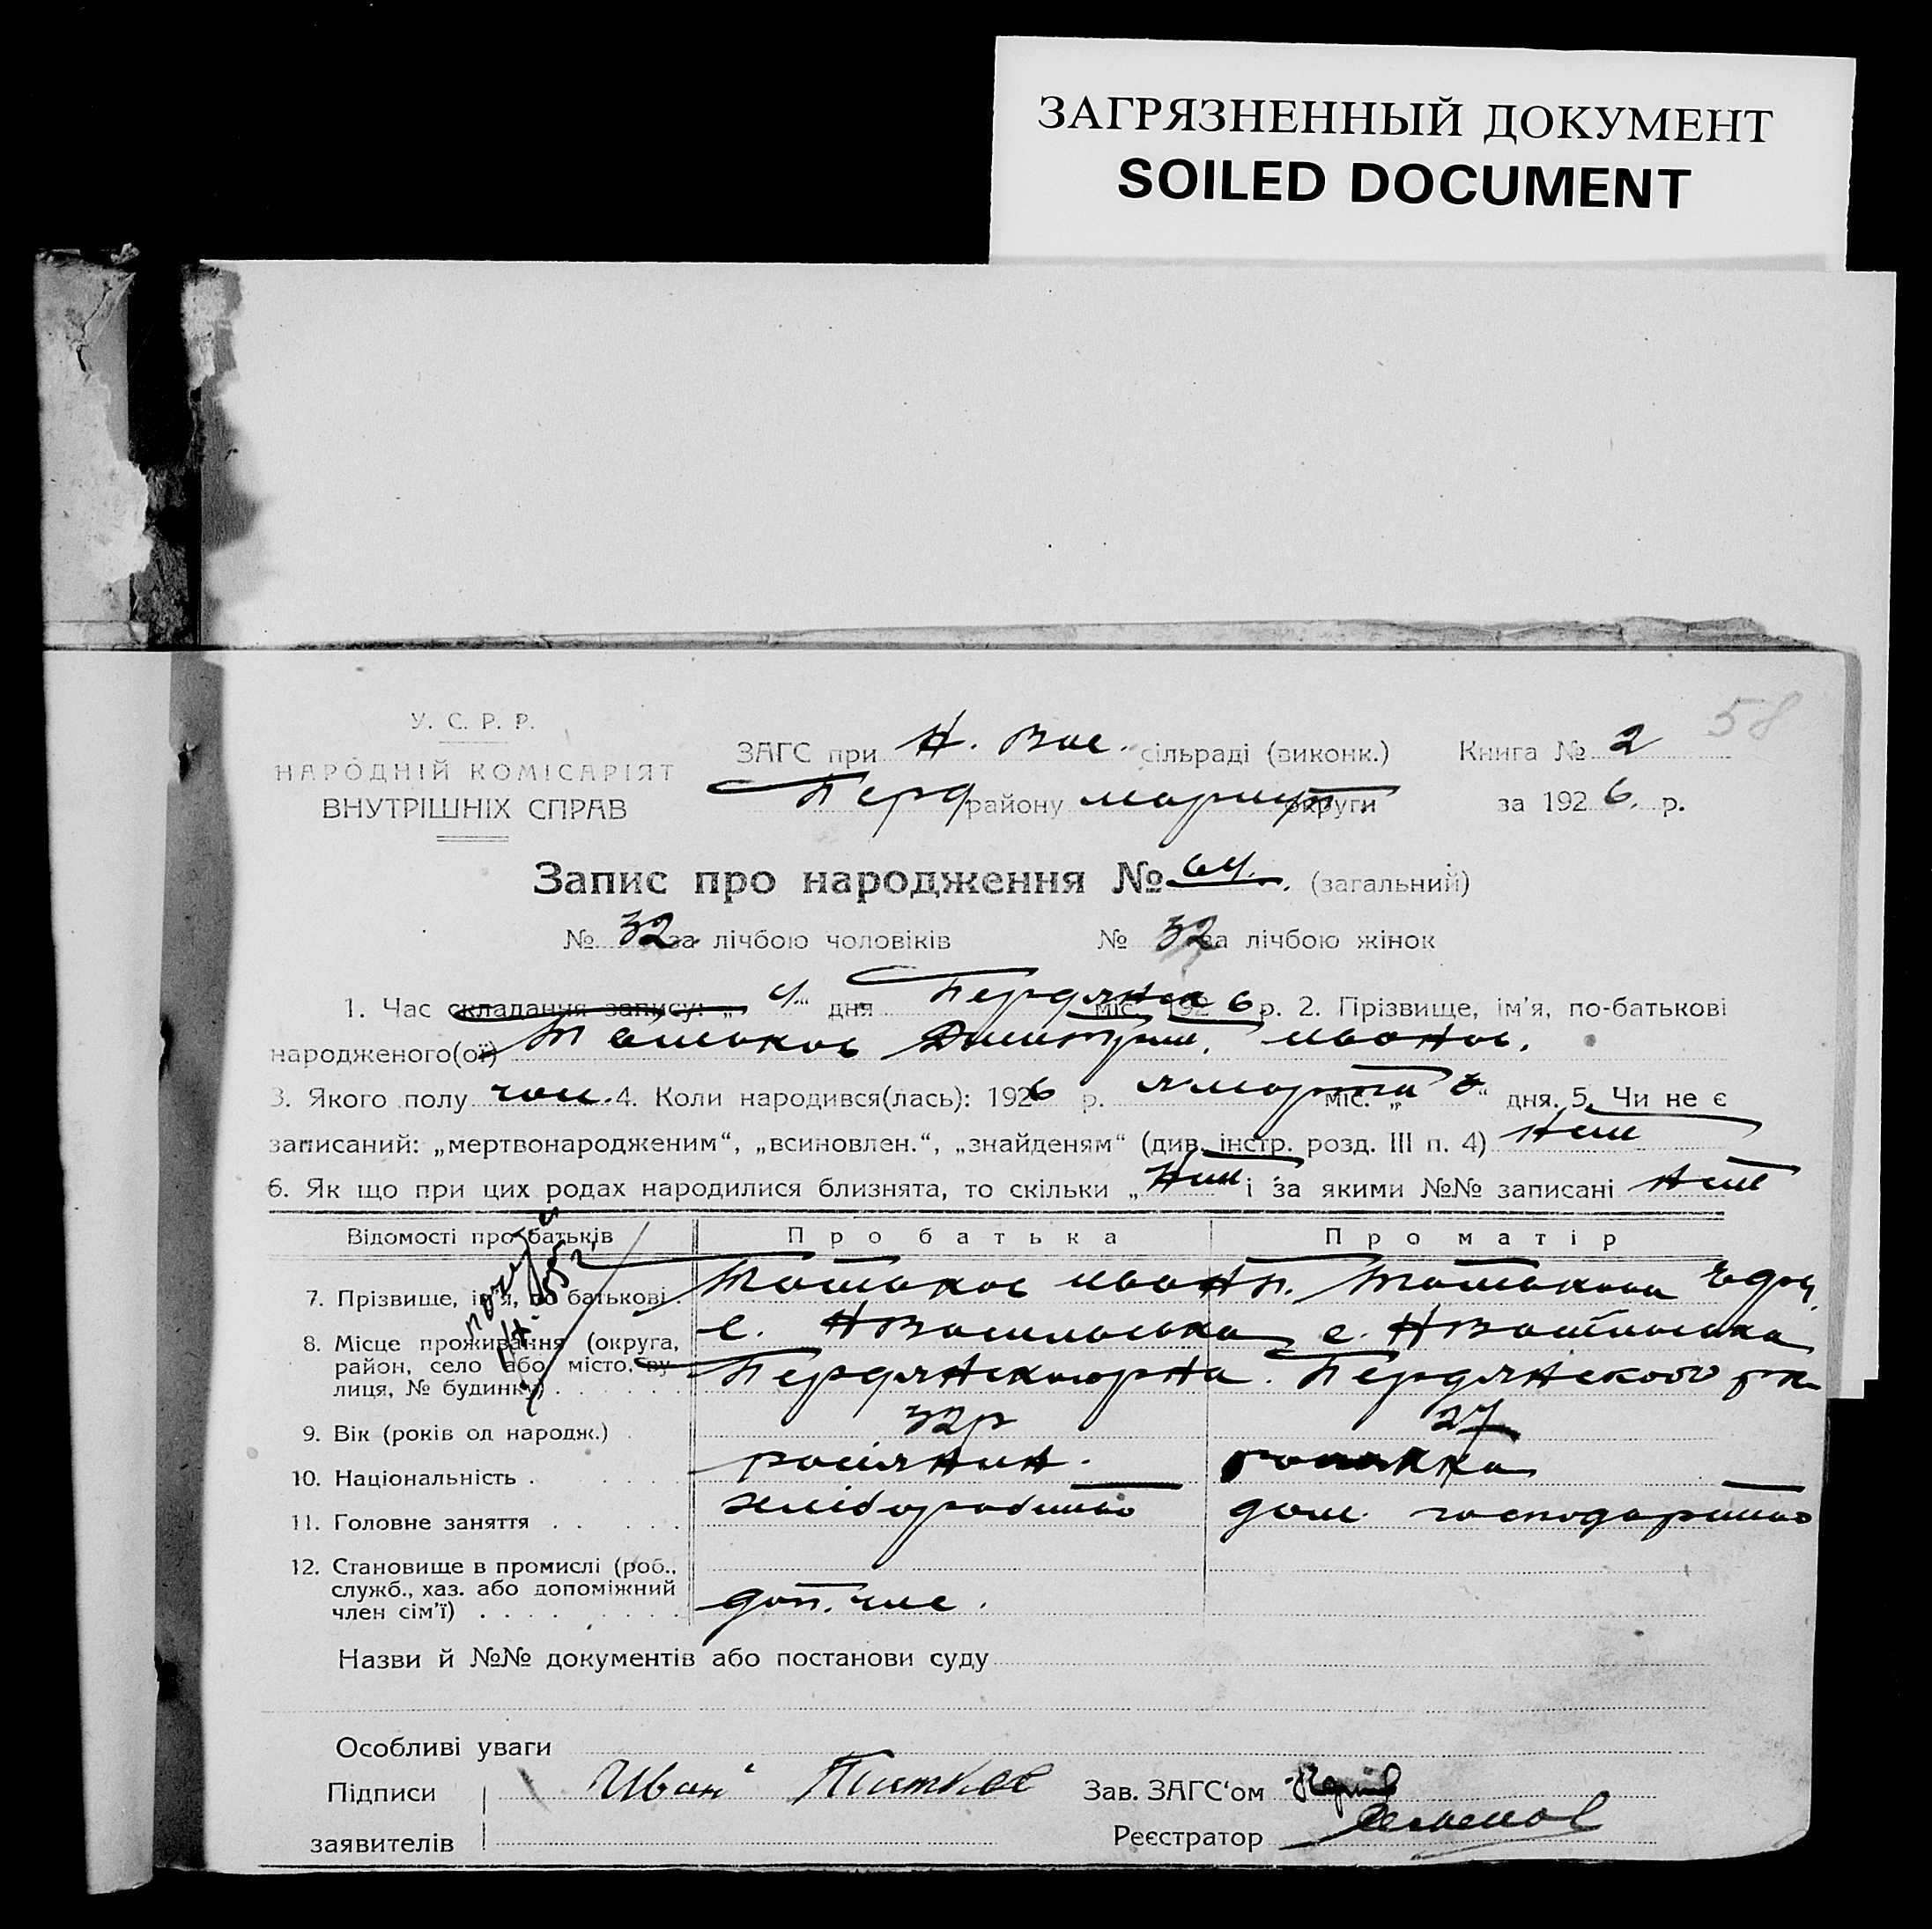 ЗАГРЯЗНЕННЫЙ ДОКУМЕНТ
SOILED DOCUMENT
58
У. С. Р. Р.
НАРОДНІЙ КОМІСАРІЯТ
ВНУТРІШНІХ СПРАВ
ЗАГС при Н. Вас. сільраді (виконк.)
Берд району мариуп. округи
Книга № 2
за 1926. р.
Запис про народження № 64. (загальний)
№ 32 за лічбою чоловіків № 32 за лічбою жінок
1. Час складання запису: „ 4 “ дня міс. 1926 р. 2. Прізвище, ім'я, по-батькові
народженого(ої) Дмитрий. Иванов.
3. Якого полу чол. 4. Коли народився(лась): 1926 р. марта міс. „ “ дня. 5. Чи не є
записаний: „мертвонародженим“, „всиновлен.“, „знайденям“ (див. інстр. розд. III п. 4) нет
6. Як що при цих родах народилися близнята, то скільки „ нет “ і за якими №№ записані нет
Відомості про батьків Про батька Про матір
7. Прізвище, ім'я, по батькові. Иван
8. Місце проживання (округа, район, село або місто, вулиця, № будинку) с. НВасильевка с. НВасильевка
Бердянского Бердянского р-на
9. Вік (років од народж.) 32р 27
10. Національність росіянин.
11. Головне заняття хліборобство дом. господарство
12. Становище в промислі (роб.,
служб., хаз. або допоміжний
член сім'ї) доп. член.
Назви й №№ документів або постанови суду
Особливі уваги
Підписи Иван Зав. ЗАГС'ом
заявителів Реєстратор